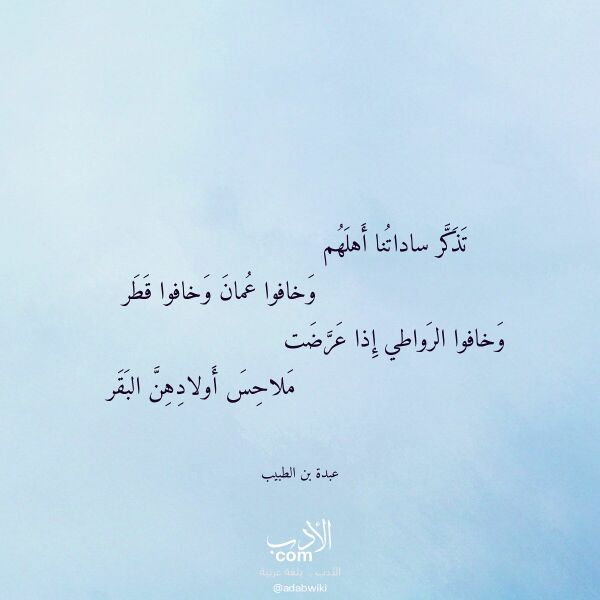 تَذَكَّر ساداتُنا أَهلَهُم
وَخافوا عُمانَ وَخافوا قَطَر
وَخافوا الرَواطي إِذا عَرَّضَت
مَلاحِسَ أَولادِهِنَّ البَقَر
عبدة بن الطبيب
الأدب
com
الأدب .. بلغة عربية
@adabwiki